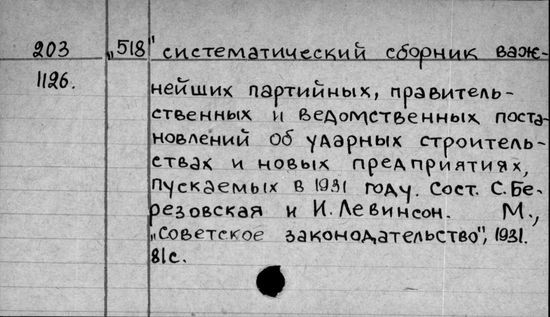 203 „518" систематический сборник важ-
1126.
нейших партийных, правитель-
ственных и ведомственных поста-
новлений об ударных строитель-
ствах и новых предприятиях,
пускаемых в 1931 году. Сост. С. Бе-
резовская и И. Левинсон. М.,
„Советское законодательство", 1931.
81с.